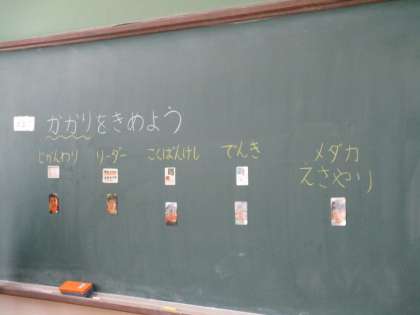 かかりをきめよう
じかんわり リーダー こくばんけし でんき メダカ
えさやり